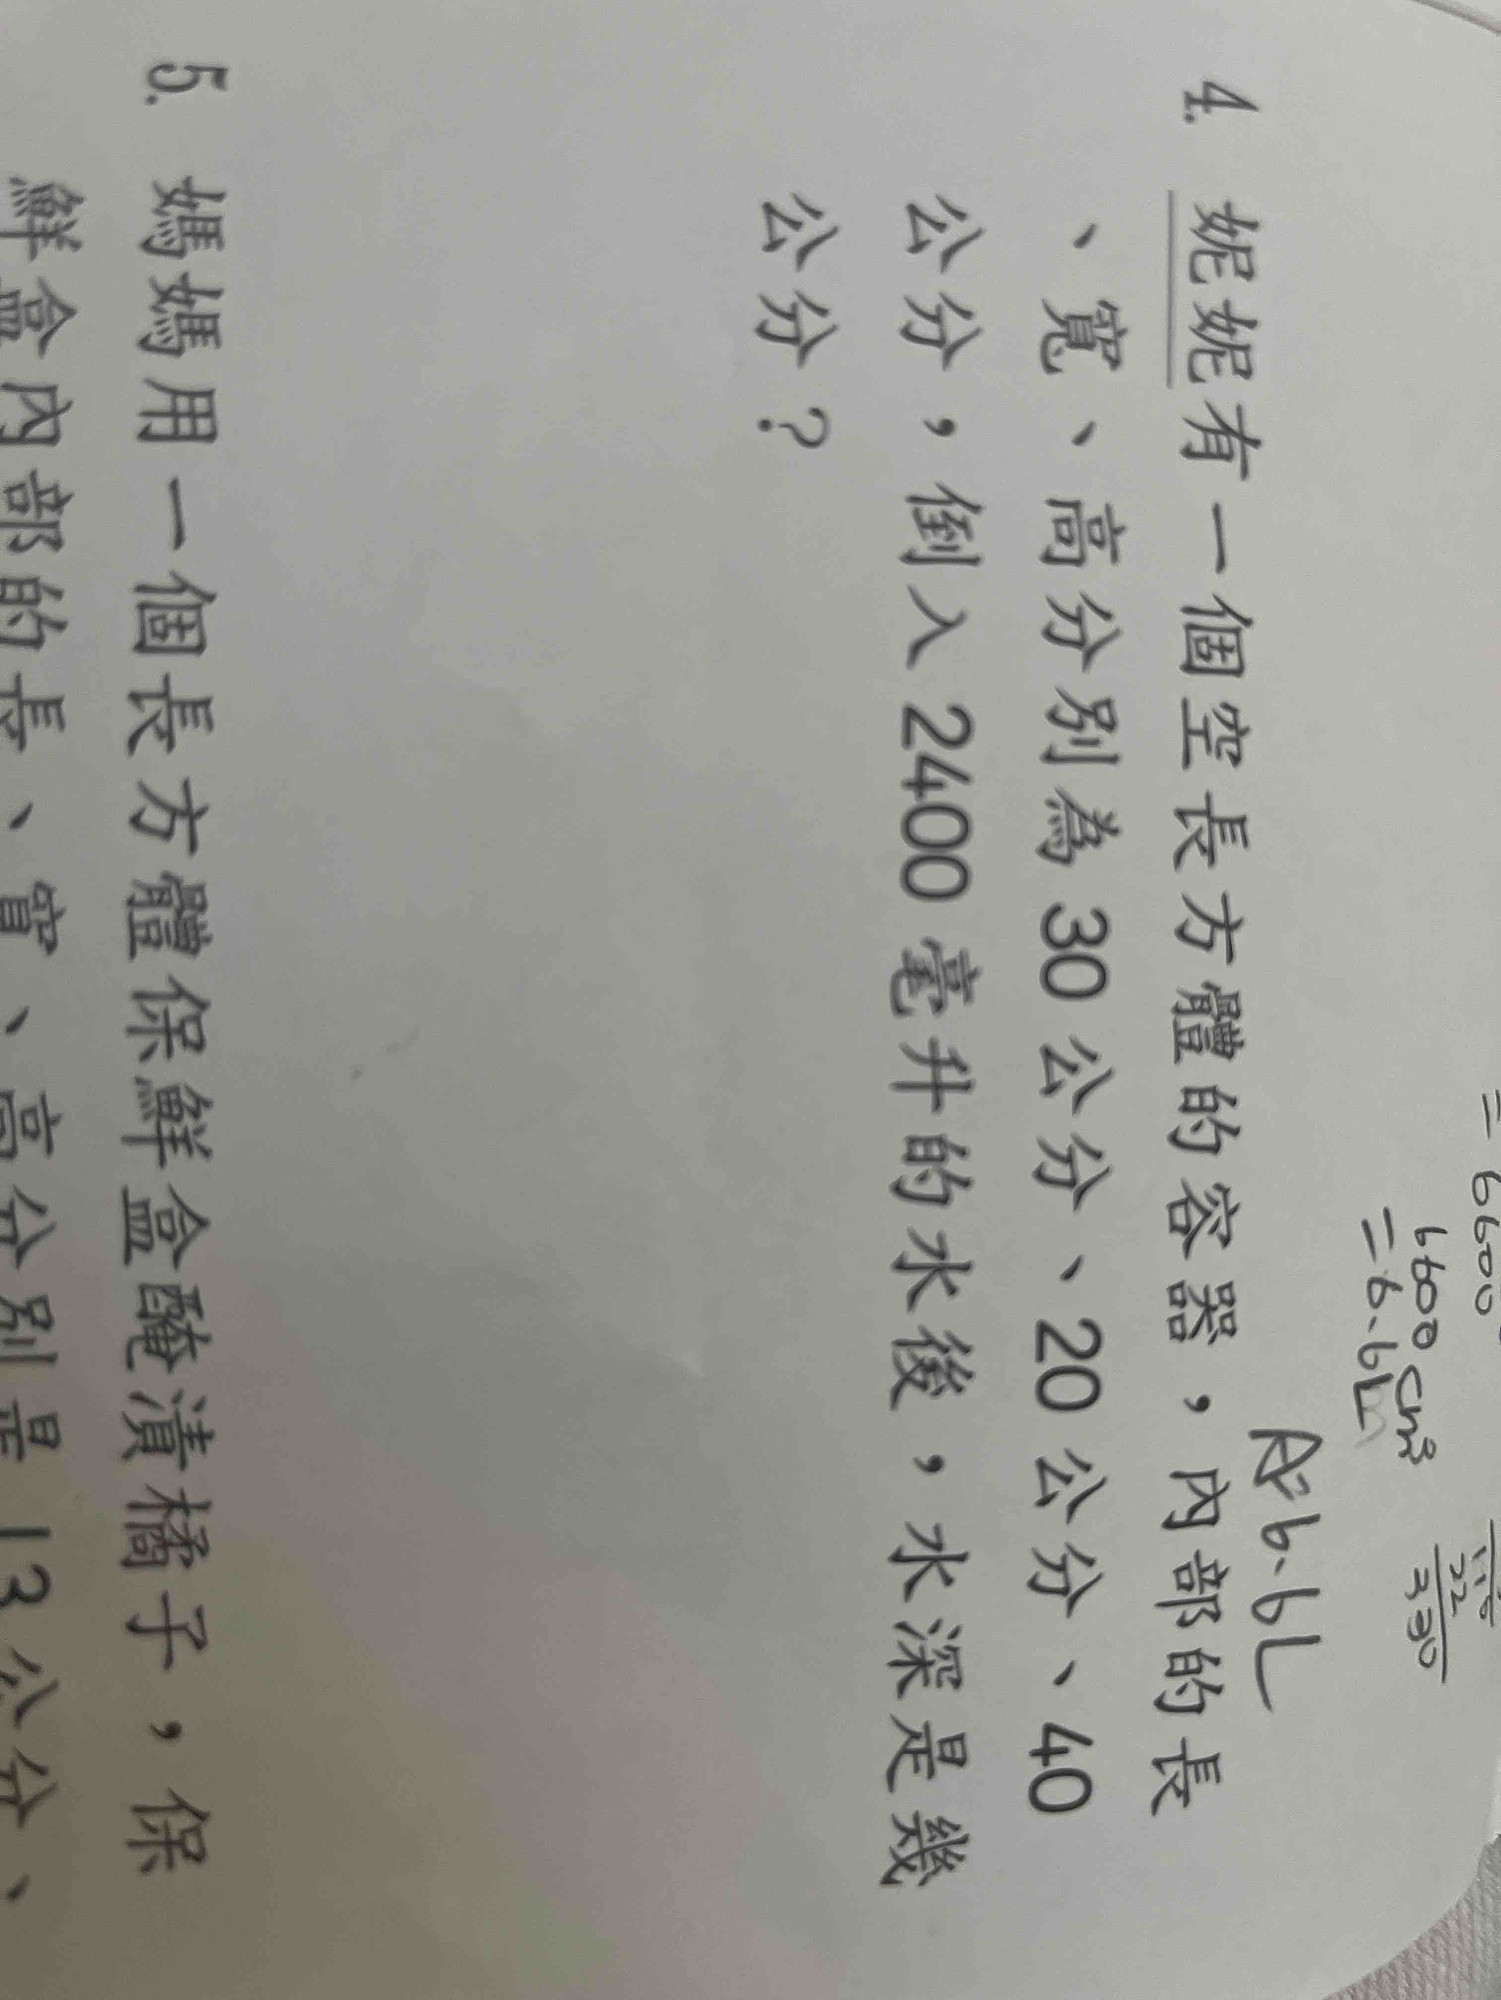 = 6600
6600 cm³
= 6.6L
330
A:6.6L
4. 妮妮有一個空長方體的容器，內部的長
、寬、高分別為 30 公分、20 公分、40
公分，倒入 2400 毫升的水後，水深是幾
公分？
5. 媽媽用一個長方體保鮮盒醃漬橘子，保
鮮盒內部的長、寬、高分別是 13 公分、